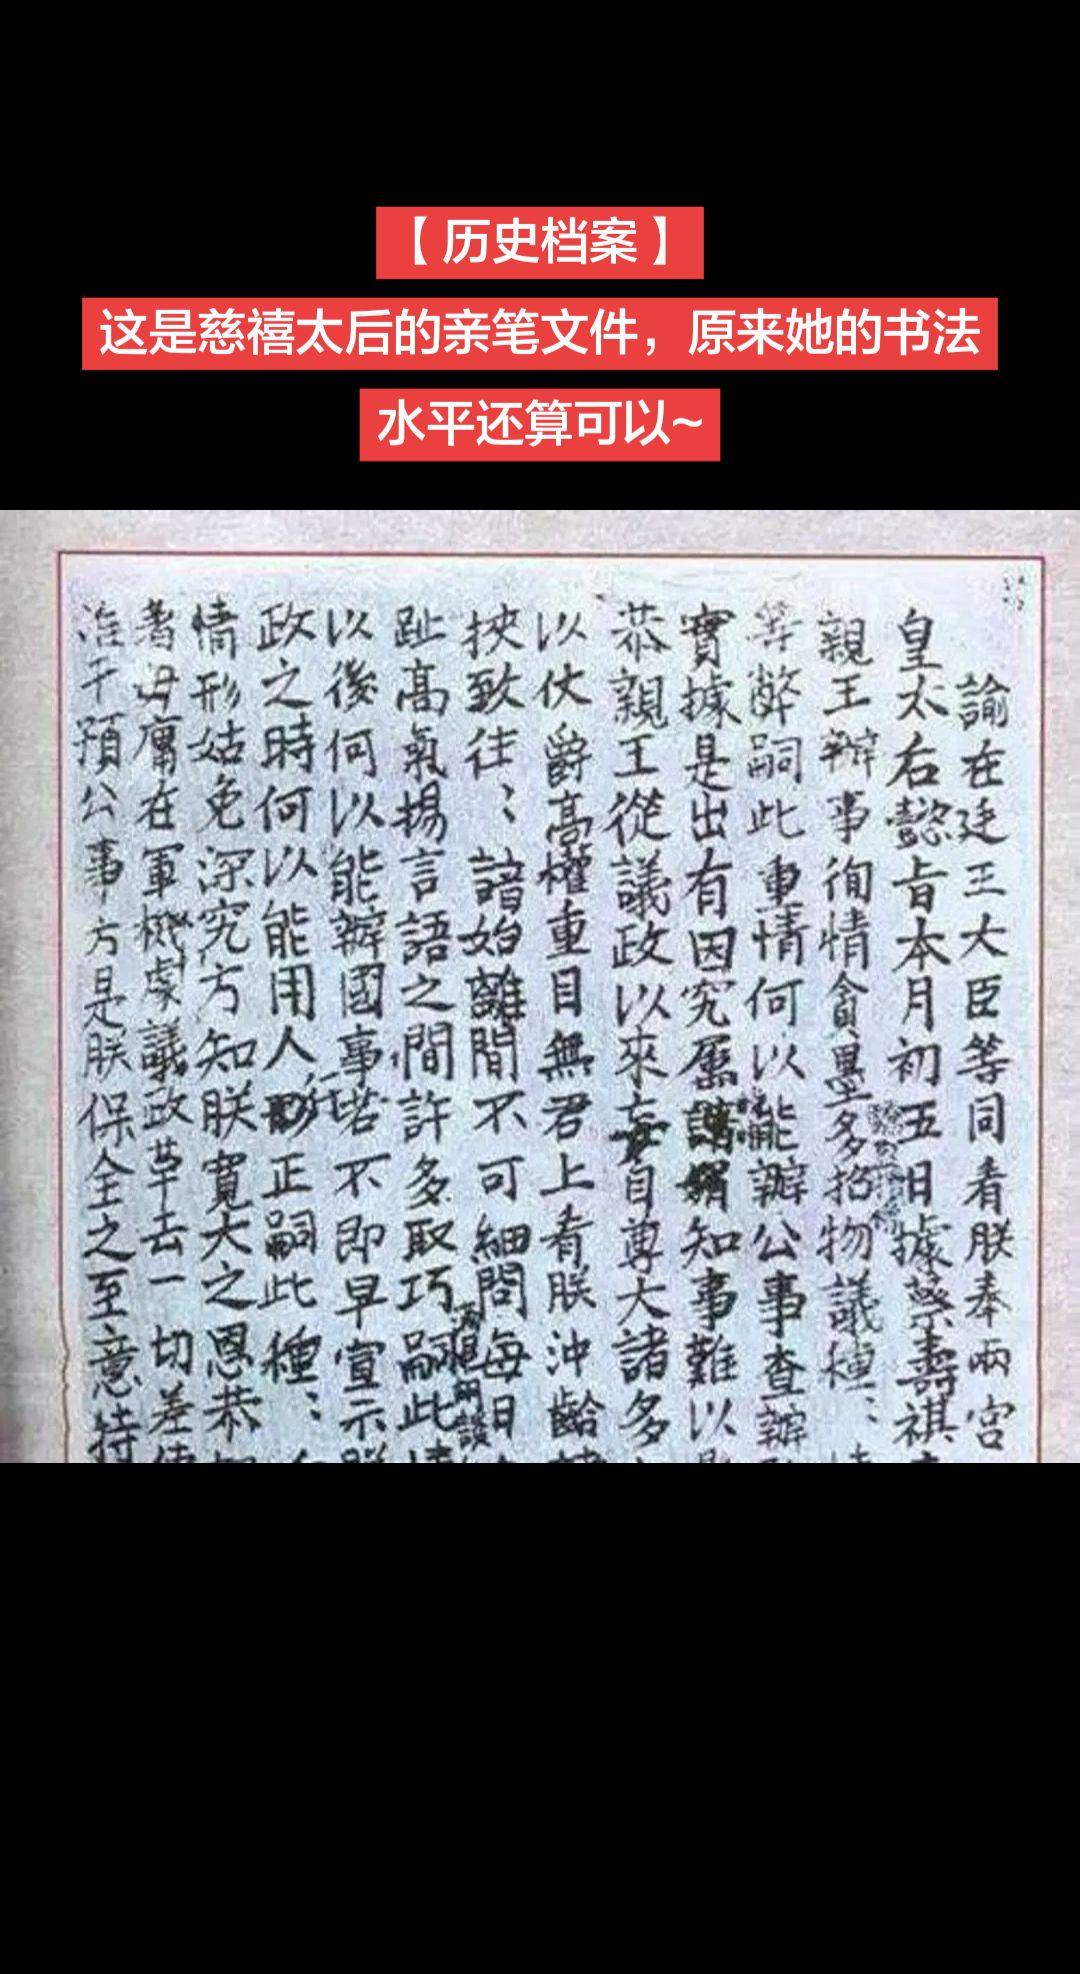 【历史档案】
这是慈禧太后的亲笔文件，原来她的书法
水平还算可以~
諭在廷王大臣等同看朕奉兩宮
皇太后懿旨本月初五日據蔡壽祺
親王辦事徇情貪墨多招物議種〻
等弊嗣此重情何以能辦公事查辦
實據是出有因究屬知事難以
恭親王從議政以來妄自尊大諸多
以仗爵高權重目無君上看朕沖齡
挾致往〻諳始離間不可細問每日
趾高氣揚言語之間許多取巧嗣此
以後何以能辦國事若不即早宣示
政之時何以能用人行正嗣此種〻
情形姑免深究方知朕寬大之恩恭
著毋庸在軍機處議政革去一切差
准干預公事方是朕保全之至意特